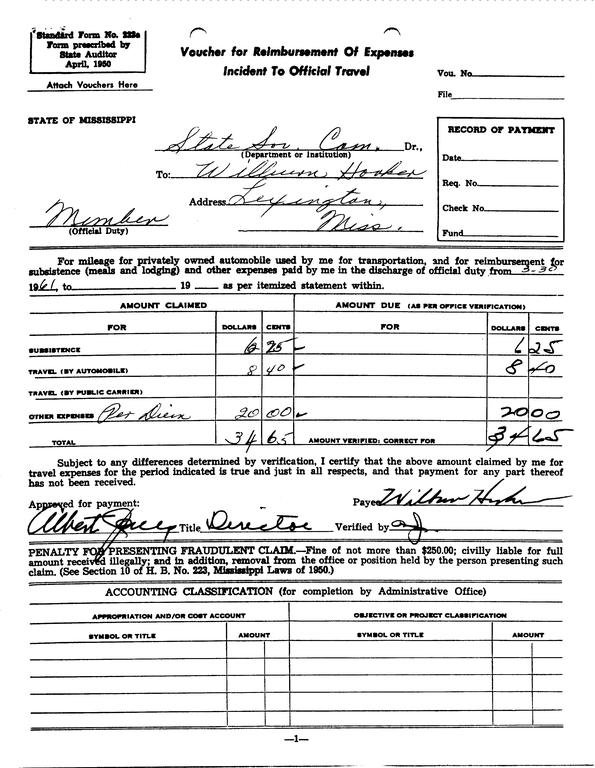 Standard Form No. 223a
Form prescribed by
State Auditor
April, 1950
Attach Vouchers Here
Voucher for Reimbursement Of Expenses
Incident To Official Travel
Vou. No.
File
STATE OF MISSISSIPPI
State Sov. Com. Dr.,
(Department or Institution)
To: Wilburn Hooker
Address Lexington,
Miss.
Member
(Official Duty)
RECORD OF PAYMENT
Date
Req. No.
Check No.
Fund
For mileage for privately owned automobile used by me for transportation, and for reimbursement for
subsistence (meals and lodging) and other expenses paid by me in the discharge of official duty from 3-30
1961, to 19 as per itemized statement within.
AMOUNT CLAIMED AMOUNT DUE (AS PER OFFICE VERIFICATION)
FOR DOLLARS CENTS FOR DOLLARS CENTS
SUBSISTENCE 6 25 6 25
TRAVEL (BY AUTOMOBILE) 8 40 8 40
TRAVEL (BY PUBLIC CARRIER)
OTHER EXPENSES Per Diem 20 00 20 00
TOTAL 34 65 AMOUNT VERIFIED: CORRECT FOR 34 65
Subject to any differences determined by verification, I certify that the above amount claimed by me for
travel expenses for the period indicated is true and just in all respects, and that payment for any part thereof
has not been received.
Approved for payment: Payee Wilburn Hooker
Albert Title Director Verified by
PENALTY FOR PRESENTING FRAUDULENT CLAIM.—Fine of not more than $250.00; civilly liable for full
amount received illegally; and in addition, removal from the office or position held by the person presenting such
claim. (See Section 10 of H. B. No. 223, Mississippi Laws of 1950.)
ACCOUNTING CLASSIFICATION (for completion by Administrative Office)
APPROPRIATION AND/OR COST ACCOUNT OBJECTIVE OR PROJECT CLASSIFICATION
SYMBOL OR TITLE AMOUNT SYMBOL OR TITLE AMOUNT
—1—